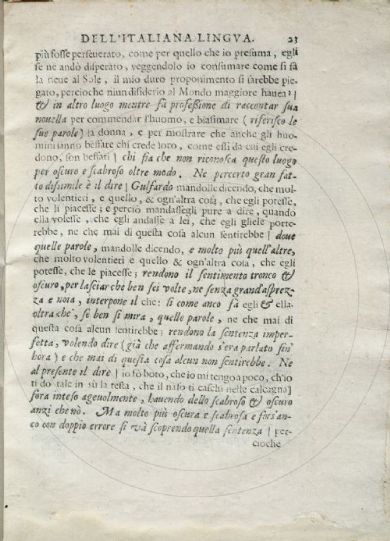 DELL'ITALIANA LINGVA. 23
più fosse perseuerato, come per quello che io presuma, egli
se ne andò disperato, veggendolo io consumare come si fà
la neue al Sole, il mio duro proponimento si sarebbe pie-
gato, percioche niun disiderio al Mondo maggiore hauea]
& in altro luogo mentre fà professione di raccontar sua
nouella per commendar l'huomo, e biasimare ( riferisco le
sue parole) la donna, e per mostrare che anche gli huo-
mini sanno beffare chi crede loro, come essi da cui egli cre-
dono, son beffati] chi sia che non riconosca questo luogo
per oscuro e scabroso oltre modo. Ne percerto gran fat-
to dissimile è il dire [ Gulfardo mandolle dicendo, che mol-
to volentieri, e quello, & ogn'altra cosa, che egli potesse,
che li piacesse; e perciò mandassegli pure a dire, quando
ella volesse, che egli andasse a lei, che egli gliele porte-
rebbe, ne che mai di questa cosa alcun sentirebbe] doue
quelle parole, mandolle dicendo, e molto più quell'altre,
che molto volentieri e quello & ogn'altra cosa, che egli
potesse, che le piacesse; rendono il sentimento tronco &
oscuro, per lasciar che ben sei volte, ne senza grand'asprez-
za e noia, interpone il che: si come anco fà egli & ella.
oltra che', se ben si mira, quello parole, ne che mai di
questa cosa alcun sentirebbe; rendono la sentenza imper-
fetta, volendo dire ( già che affermando s'era parlato sin'
hora) e che mai di questa cosa alcun non sentirebbe. Ne
al presente il dire [ io fò boto, che io mi tengo a poco, ch'io
ti do tale in sù la testa, che il naso ti caschi nelle calcagna]
fora inteso ageuolmente, hauendo dello scabroso & oscuro
anzi che nò. Ma molto più oscura e scabrosa e fors'an-
co con doppio errore si và scoprendo quella sentenza [ per-
cioche